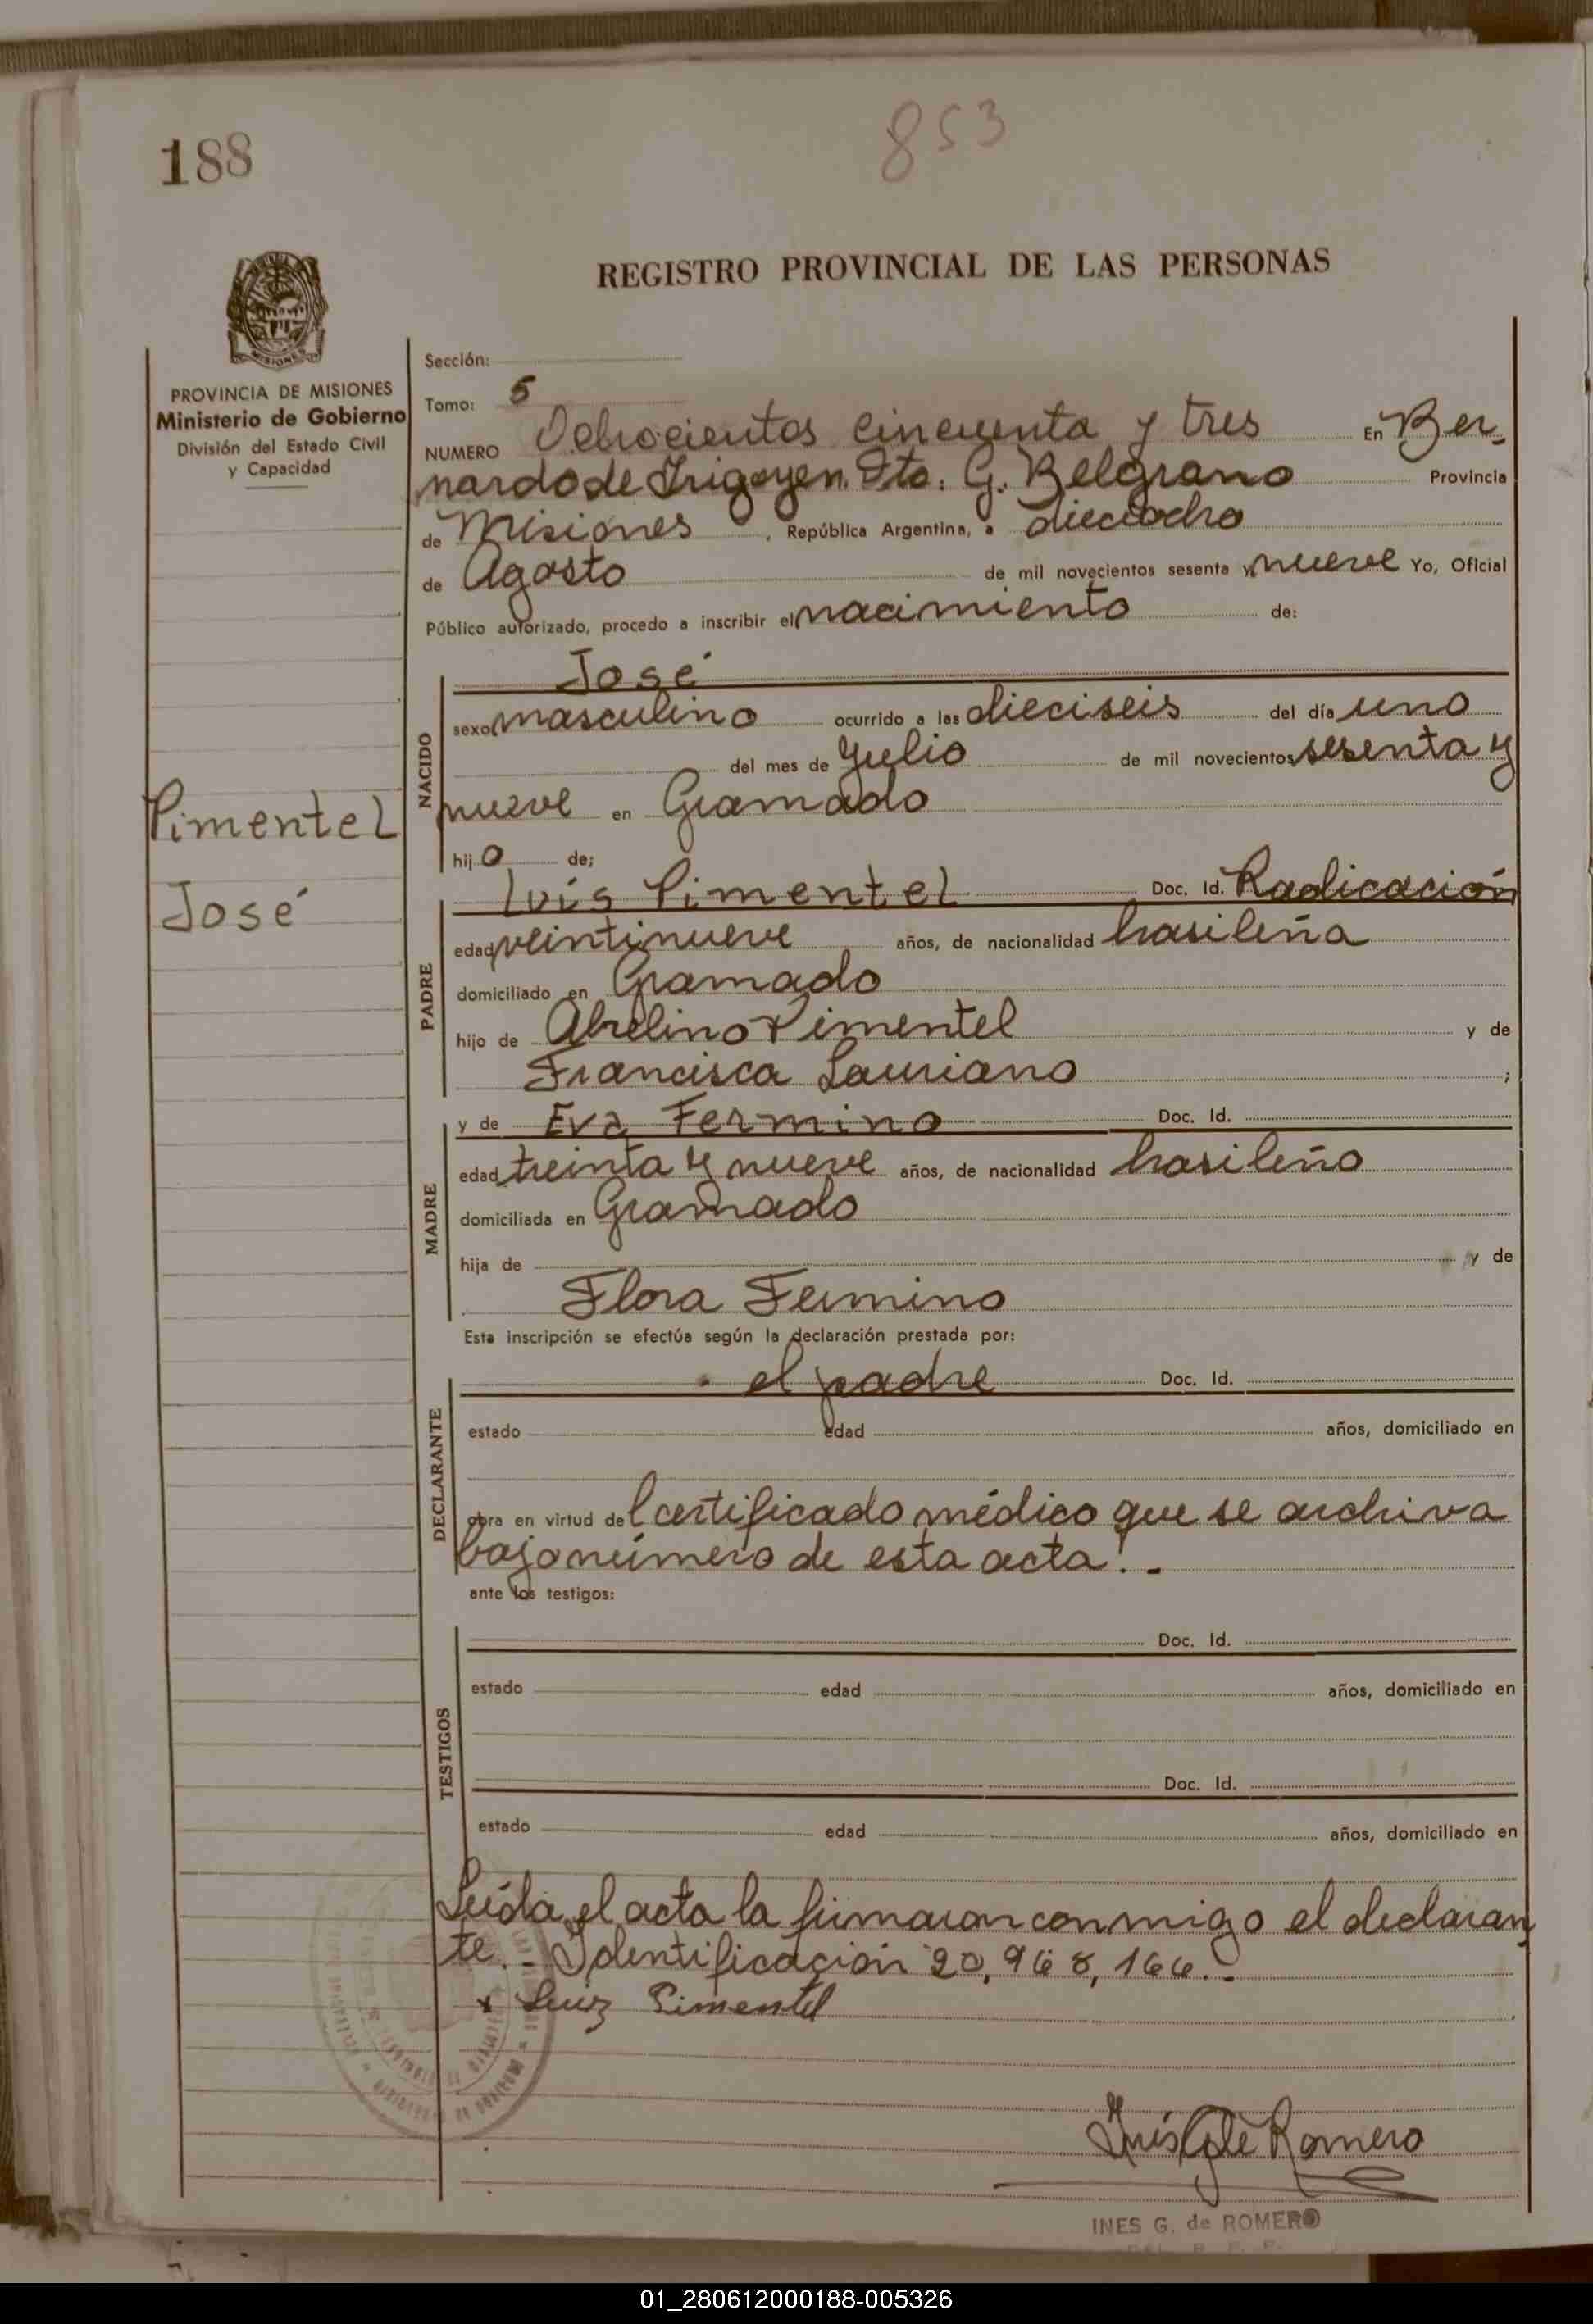 188
853
REGISTRO PROVINCIAL DE LAS PERSONAS
MISIONES
PROVINCIA DE MISIONES
Ministerio de Gobierno
División del Estado Civil
y Capacidad
Pimentel
José
Sección:
Tomo: 5
NUMERO Ochocientos cincuenta y tres En Ber-
nardo de Irigoyen. Dto. G. Belgrano Provincia
de Misiones, República Argentina, a dieciocho
de Agosto de mil novecientos sesenta y nueve Yo, Oficial
Público autorizado, procedo a inscribir el nacimiento de:
José
NACIDO
sexo masculino ocurrido a las dieciseis del día uno
del mes de Julio de mil novecientos sesenta y
nueve en Gramado
hijo de;
Luís Pimentel Doc. Id. Radicación
PADRE
edad veintinueve años, de nacionalidad brasileña
domiciliado en Gramado
hijo de Abelino Pimentel y de
Francisca Lauriano ;
y de Eva Fermino Doc. Id.
MADRE
edad treinta y nueve años, de nacionalidad brasileño
domiciliada en Gramado
hija de y de
Flora Fermino
Esta inscripción se efectúa según la declaración prestada por:
el padre Doc. Id.
DECLARANTE
estado edad años, domiciliado en
obra en virtud del certificado médico que se archiva
bajo número de esta acta.-
ante los testigos:
Doc. Id.
TESTIGOS
estado edad años, domiciliado en
Doc. Id.
estado edad años, domiciliado en
Leída el acta la firmaron conmigo el declaran
te.- Identificación
x Luiz Pimentel
Inés G de Romero
INES G. de ROMERO
01_280612000188-005326